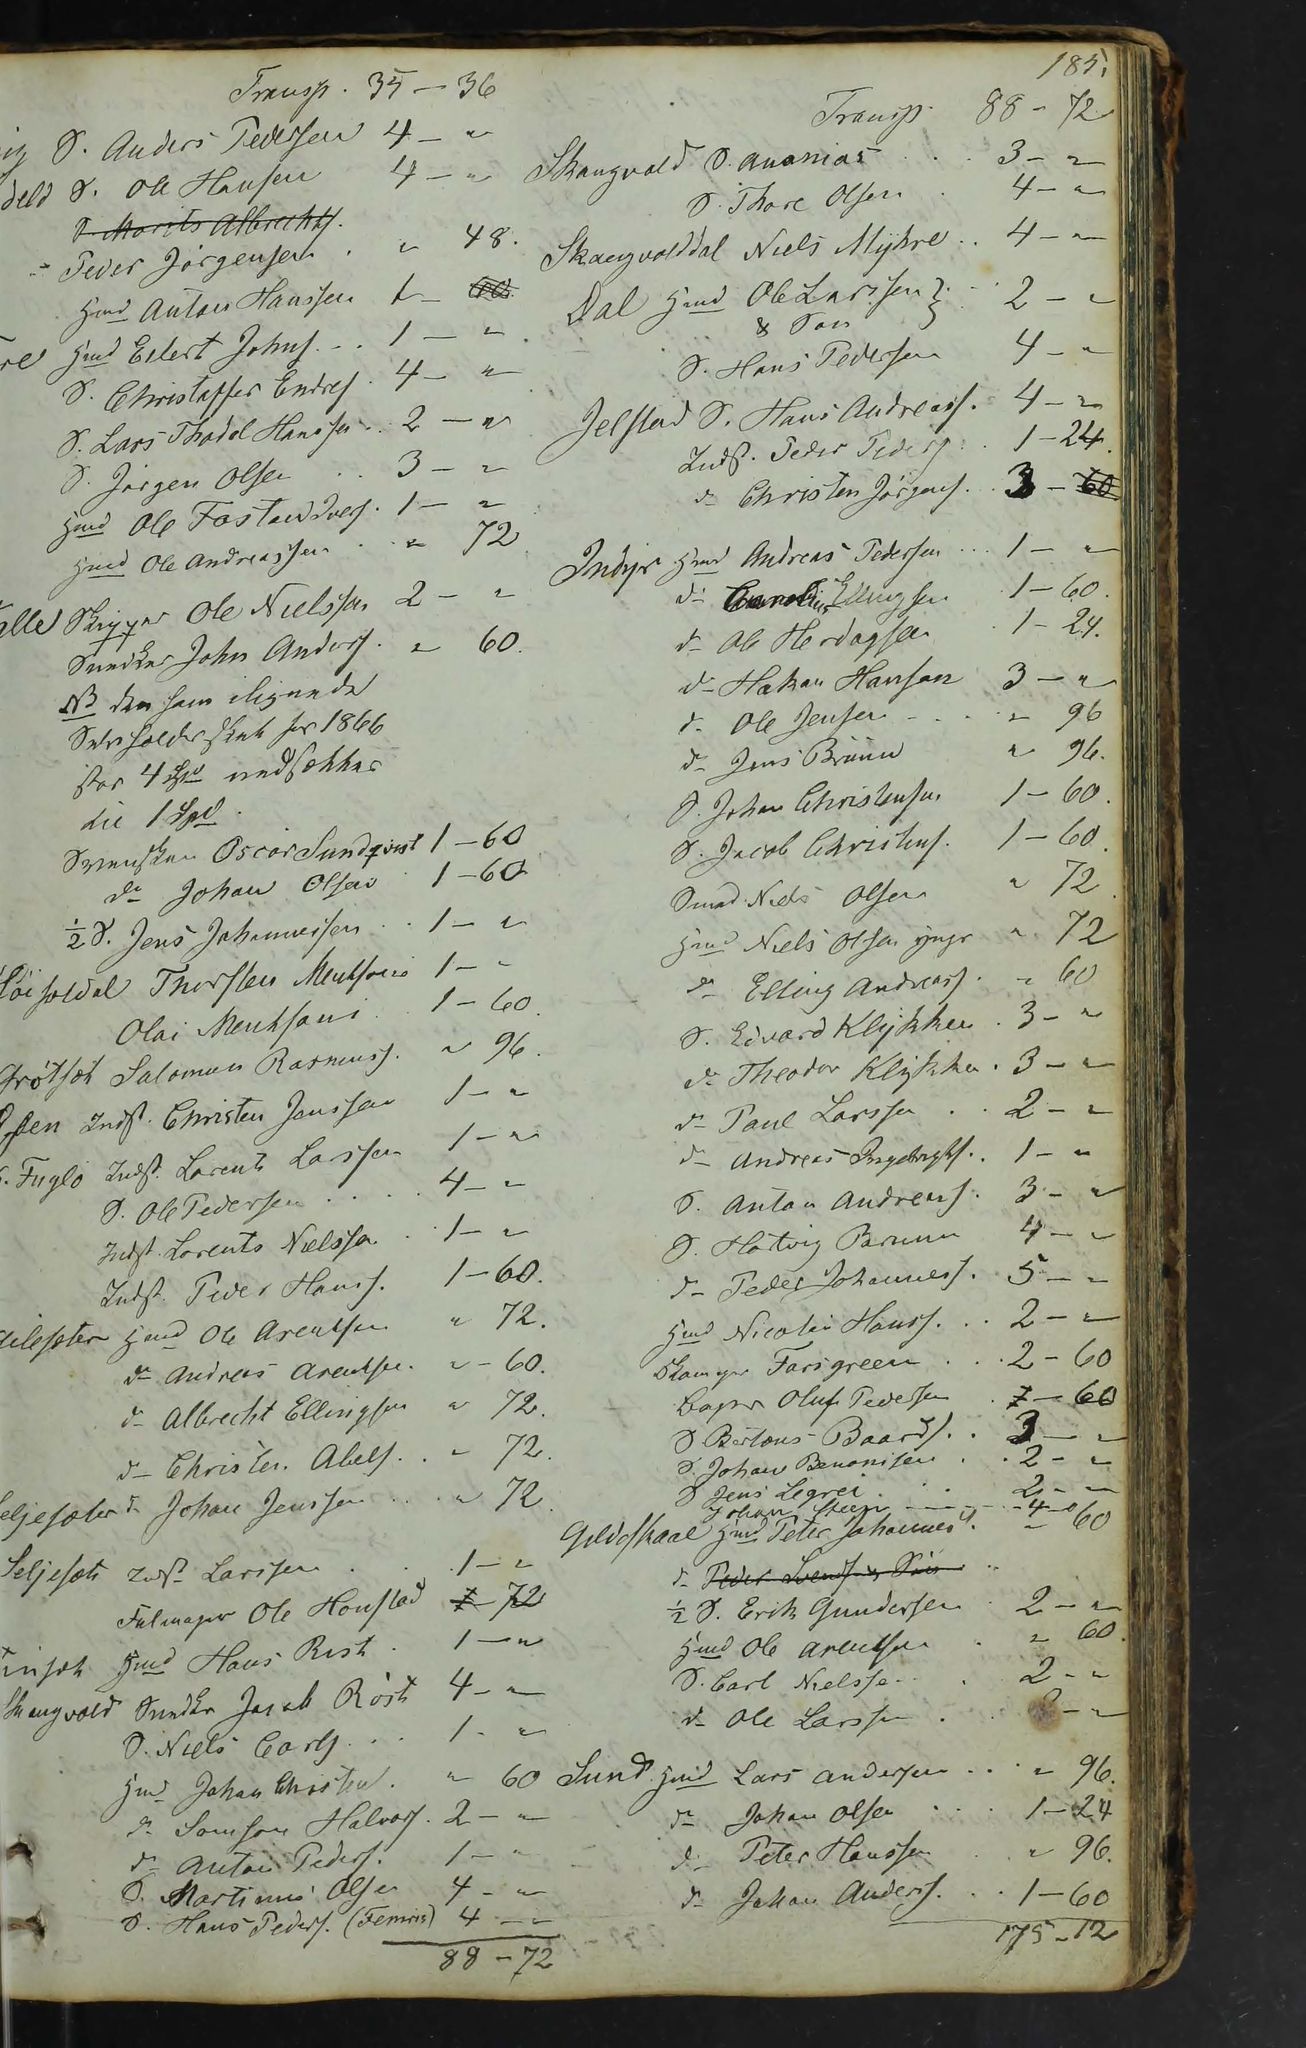 185.
Transp. 35 — 36
S. Anders Pedersen 4 — "
S. Ole Hansen 4 — "
S. Morits Albrechts.
Peder Jørgensen . " 48.
Hmd Anton Hanssen 1 —
Hmd Eilert Johns. . . 1 — "
S. Christoffer Endres. 4 — "
S. Lars Thodal Hanssen . 2 — "
S. Jørgen Olsen . . 3 — "
Hmd Ole Iversf. 1 — "
Hmd Ole Andreassen . . " 72
Skipper Ole Nielssen 2 — "
Snedker John Anders. . " 60.
NB den som
for 1866
4 Spd nedsættes
til 1 Spd.
Svensken Oscar Sundqvist 1 — 60
do Johan Olsen 1 — 60
½ S. Jens Johannessen . . 1 — "
Thorsten Mentsoni 1 — "
Olai Mentsoni . 1 — 60.
Salomon Rasmuss. " 96.
Indst. Christen Jenssen 1 — "
Fuglø Indst. Lorents Larssen 1 — "
S. Ole Pedersen . . . . 4 — "
Indst. Lorents Nielssen . 1 — "
Indst. Peder Hanss. 1 — 60.
Hmd Ole Arentsen " 72.
do Andreas Arentsen. " — 60.
do Albrecht Ellingsen " 72.
do Christen Abels. . " 72.
do Johan Jenssen . . . " 72.
Seljesæt Indst. Larssen . . 1 — "
Ole Honstad 1 — 72
Hmd Hans Rist . 1 — "
Skaugvold Snedker Jacob Röst 4 — "
S. Niels Carls. . . 1 — "
Hmd Johan Christens. " 60
do Somson Halvors. 2 — "
do Anton Peders. 1 — "
S. Martinus Olsen 4 — "
S. Hans Peders. (Femris) 4 — "
88 — 72
Transp. 88 — 72
Skaugvold S. Ananias . . . 3 — "
S. Thore Olsen . 4 — "
Skaugvolddal Niels Myhre . . 4 — "
Dal Hmd Ole Larssen } . . 2 — "
& Søn
S. Hans Pedersen 4 — "
Jelstad S. Hans Andreass. 4 — "
Indst. Peder Peders. . . 1 — 24.
do Christen Jörgens. . 3 — 60
Indyr Hmd Andreas Pedersen . . . 1 — "
do Ellingsen 1 — 60.
do Ole Herdagsen 1 — 24.
do Hakan Hanson 3 — "
do Ole Jensen . . . " 96
do Jens Brunn " 96.
S. Johan Christensen 1 — 60.
S. Jacob Christens. 1 — 60.
Smed Niels Olsen " 72.
Hmd Niels Olsen yngr " 72
do Elling Andreass. " 60
S. Edvard Klykken . 3 — "
do Theodor Klykken . 3 — "
do Paul Larssen . . 2 — "
do Andreas Ingebrigts. . 1 — "
S. Anton Andreass. 3 — "
S. Hartvig Brunn 4 — "
do Peder Johanness. 5 — "
Hmd Nicolai Hanss. . . 2 — "
Farsgreen . . . 2 — 60
Bager Oluf Pedersen . 1 — 60
S. Bertous Baards. . . 3 — "
S. Johan Benonisen . . 2 — "
S. Jens Legrei . . . 2 — "
Johan Steen 4 — "
Gildeskaal Hmd Peter Johanness. " 60
do Peder Svendsens Søn . .
½ S. Erik Gundersen . 2 — "
Hmd Ole Arentsen . " 60.
S. Carl Nielssen . . 2 — "
do Ole Larssen . . — "
Sund Hmd Lars Andersen . . . " 96.
do Johan Olsen . . . 1 — 24
do Peter Hanssen . " 96.
do Johan Anders. . . 1 — 60
175 — 12